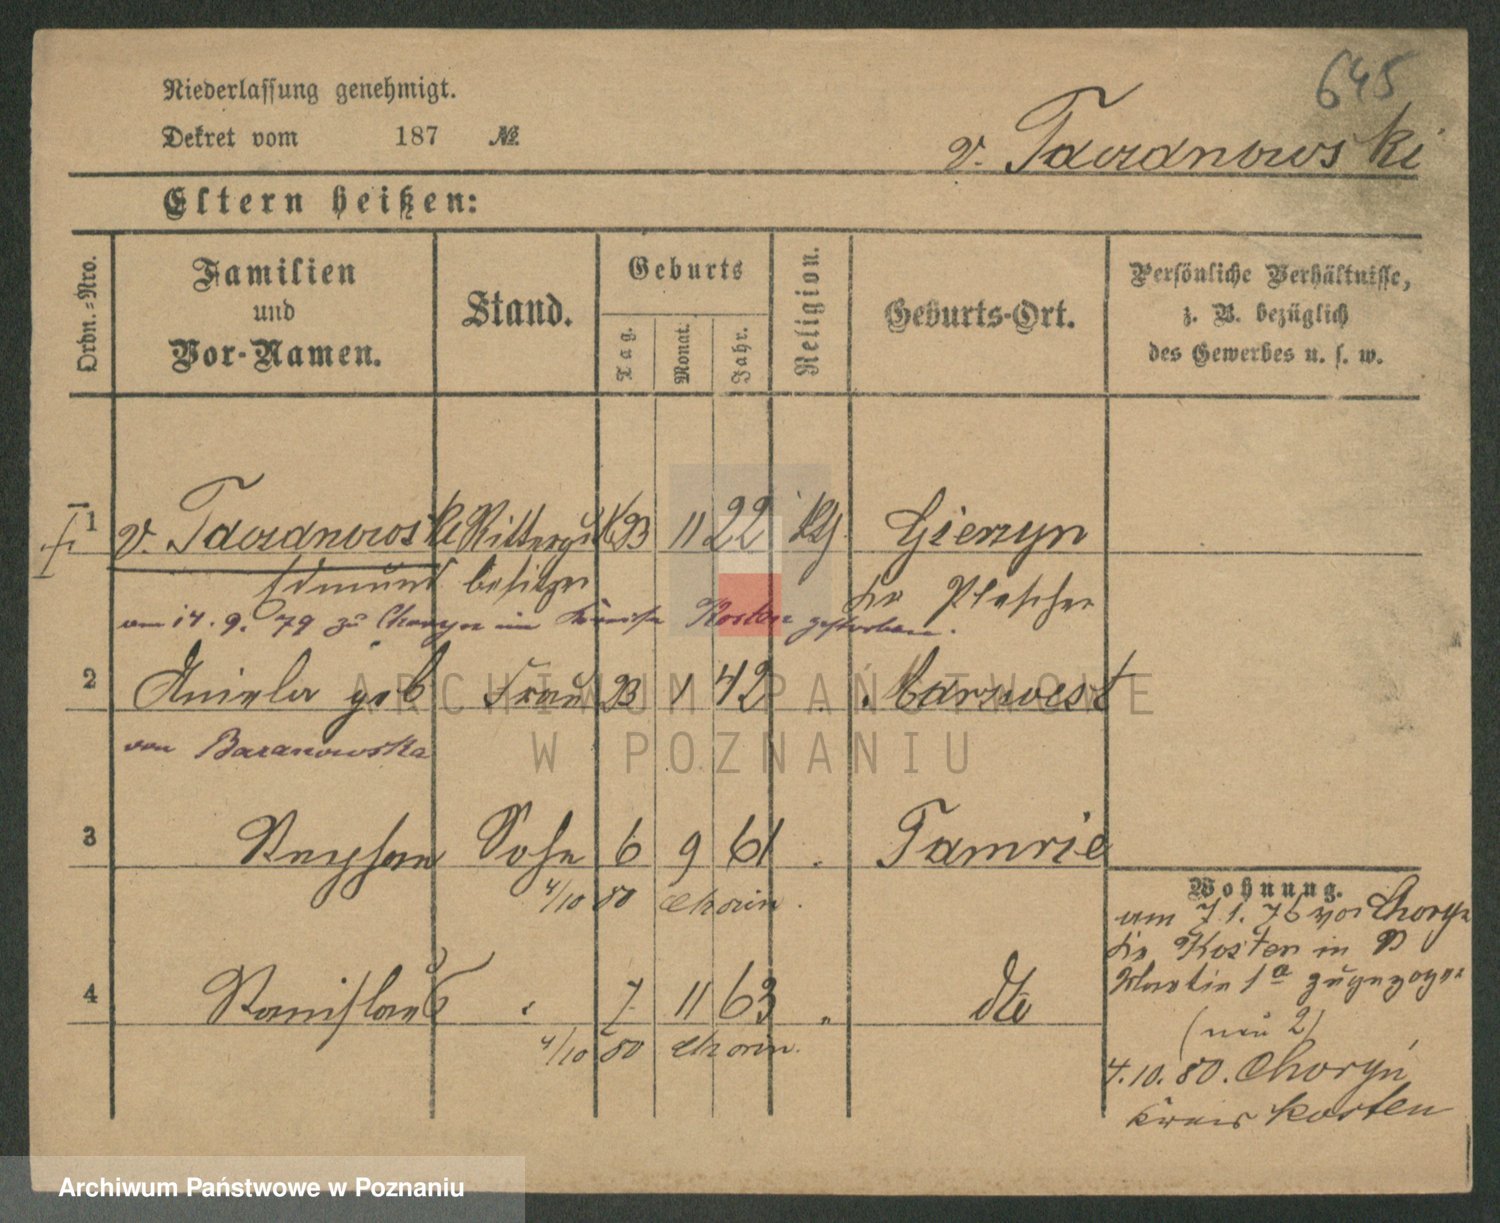 645
Niederlassung genehmigt.
Dekret vom 187 №
v. Taczanowski
Eltern heißen:
Ordn.-Nro.
Familien und Vor-Namen.
Stand.
Geburts
Tag.
Monat.
Jahr.
Religion.
Geburts-Ort.
Persönliche Verhältnisse,
z. B. bezüglich
des Gewerbes u. s. w.
1 v. Taczanowski Ritterguts 23 11 22
Edmund besitzer Kr Pleschen
am 14. 9. 79 zu Choryn im Kreise Kosten gestorben.
2 Aniela geb Frau 23 1 42
von Baranowska
3 Sohn 6 9 61
4/10 80 Chorin.
4 Stanislaus 7 11 63 " dto
4/10 80 Chorin.
Wohnung.
am 7.1.76 von Choryn
Kr Kosten in
Martin 1a zugezogen
(neu 2)
4.10.80. Choryń
Kreis Kosten
ARCHIWUM PAŃSTWOWE
W POZNANIU
Archiwum Państwowe w Poznaniu